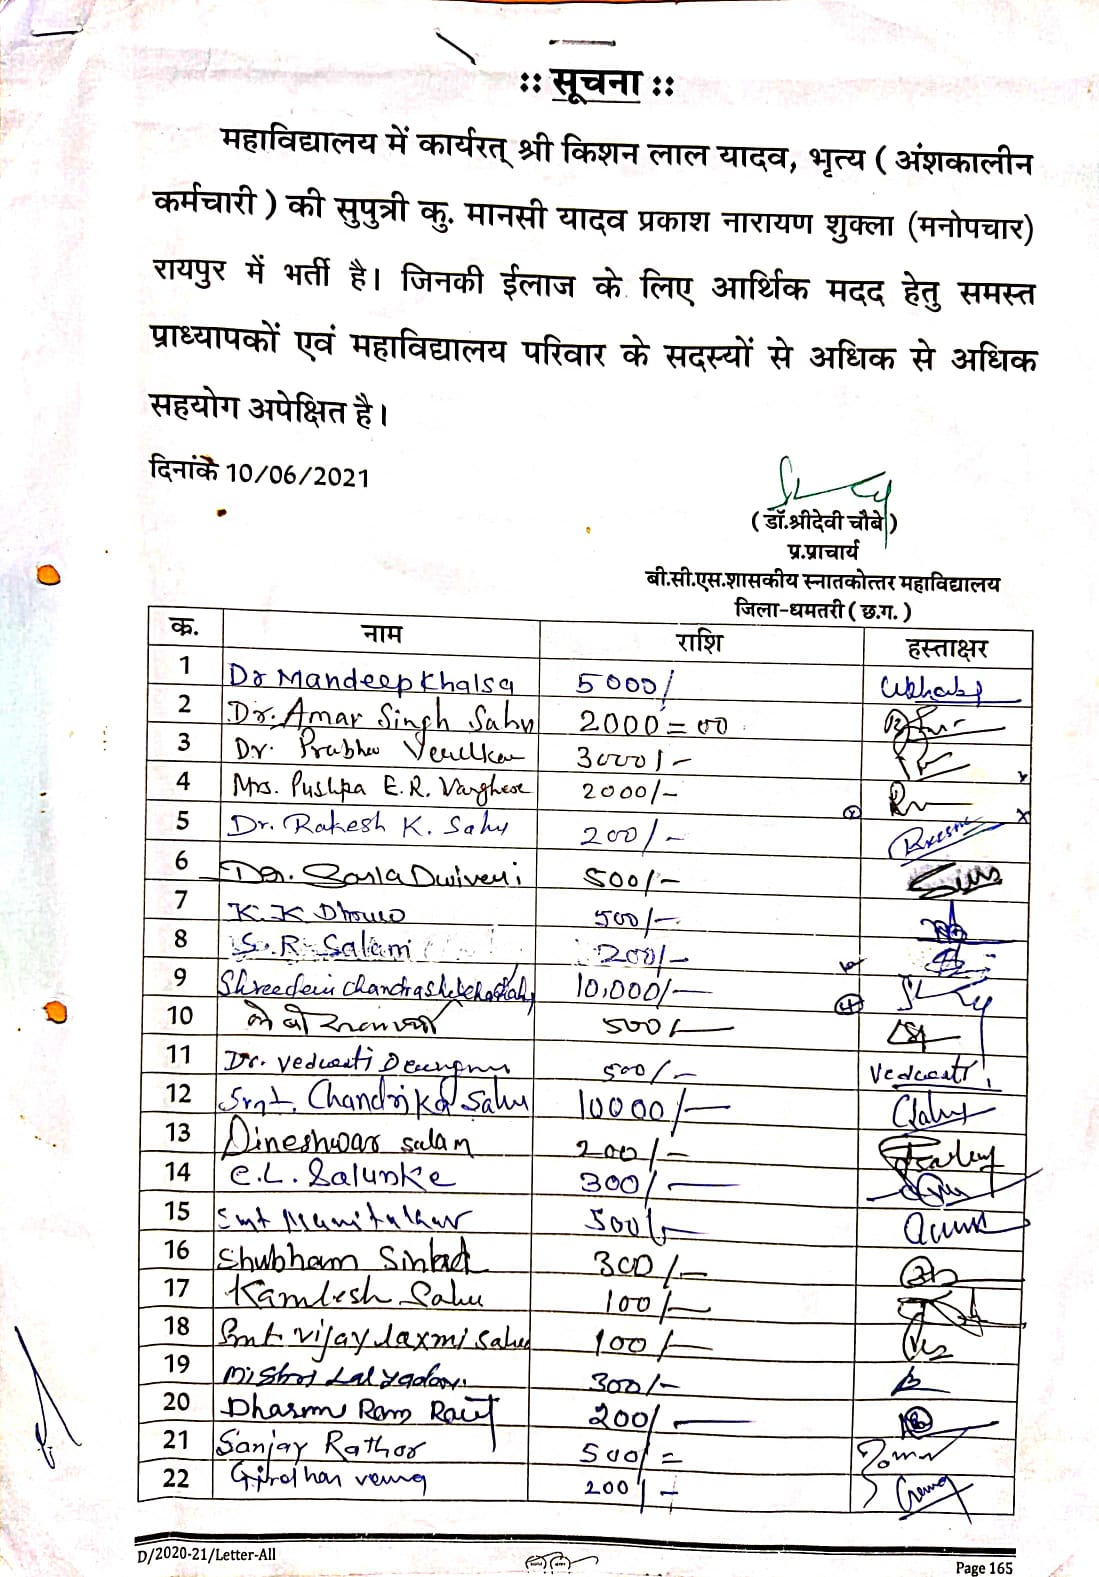 :: सूचना ::
महाविद्यालय में कार्यरत् श्री किशन लाल यादव, भृत्य ( अंशकालीन
कर्मचारी ) की सुपुत्री कु. मानसी यादव प्रकाश नारायण शुक्ला (मनोपचार)
रायपुर में भर्ती है। जिनकी ईलाज के लिए आर्थिक मदद हेतु समस्त
प्राध्यापकों एवं महाविद्यालय परिवार के सदस्यों से अधिक से अधिक
सहयोग अपेक्षित है।
दिनांक 10/06/2021
( डॉ.श्रीदेवी चौबे )
प्र.प्राचार्य
बी.सी.एस.शासकीय स्नातकोत्तर महाविद्यालय
जिला-धमतरी ( छ.ग. )
क. नाम राशि हस्ताक्षर
1 Dr Mandeep Khalsa 5000/
2 Dr. Amar Singh Sahu 2000=00
3 Dr. Prabha 3000/-
4 Mrs. Pushpa E.R. Varghese 2000/-
5 Dr. Rakesh K. Sahu 200/-
6 Dr. Sarla Dwivedi 500/-
7 K.K 500/-
8 S. R. Salam 200/-
9 10,000/-
10 500/-
11 Dr. Vedwati 500/- Vedwati
12 Smt. Chandrika Sahu 10000/-
13 Dineshwar Salam 200/-
14 C.L. Salunke 300/-
15 Smt 500/-
16 Shubham 300/-
17 Kamlesh Sahu 100/-
18 Smt Vijay laxmi Sahu 100/-
19 Mistri Lal Yadav 300/-
20 Dharm Ram Raut 200/-
21 Sanjay Rathor 500/=
22 Girdhan verma 200/-
D/2020-21/Letter-All
Page 165